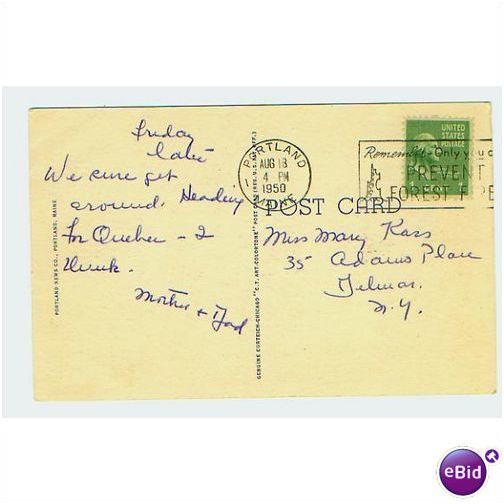 Friday
Late
We sure get
around. Heading
for Quebec - I
think.
Mother + Dad
PORTLAND NEWS CO., PORTLAND, MAINE
GENUINE CURTEICH-CHICAGO "C.T. ART-COLORTONE" POST CARD (REG. U.S. PAT. OFF.)
PORTLAND
AUG 18
4 PM
1950
MAINE
Remember-Only you c
PREVENT
FOREST FIRE
UNITED
STATES
POSTAGE
POST CARD
Miss Mary Kass
35 Adams Place
Delmar
N.Y.
eBid